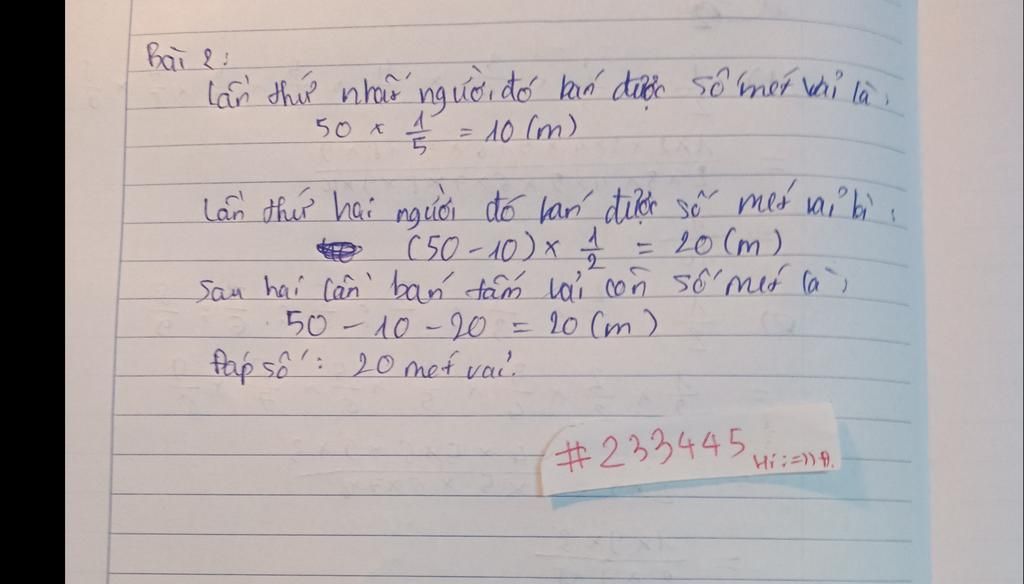 Bài 2:
Lần thứ nhất người đó bán được số mét vải là:
50 × 1/5 = 10 (m)
Lần thứ hai người đó bán được số mét vải là:
(50 - 10) × 1/2 = 20 (m)
Sau hai lần bán tấm vải còn số mét là:
50 - 10 - 20 = 20 (m)
Đáp số: 20 mét vải.
#233445